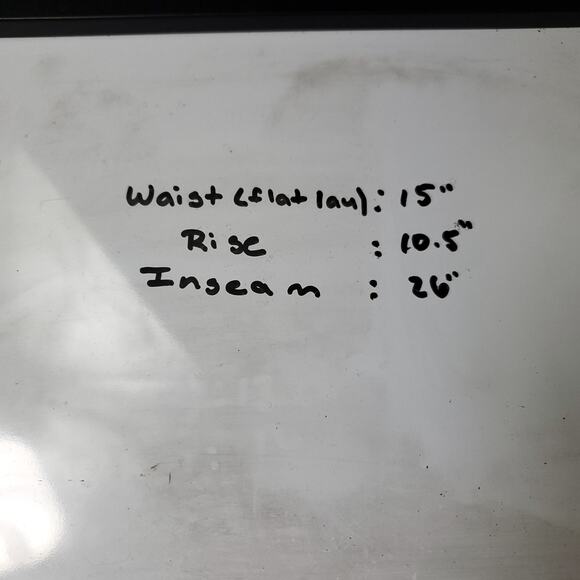 Waist (flat lay): 15"
Rise : 10.5"
Inseam : 26"